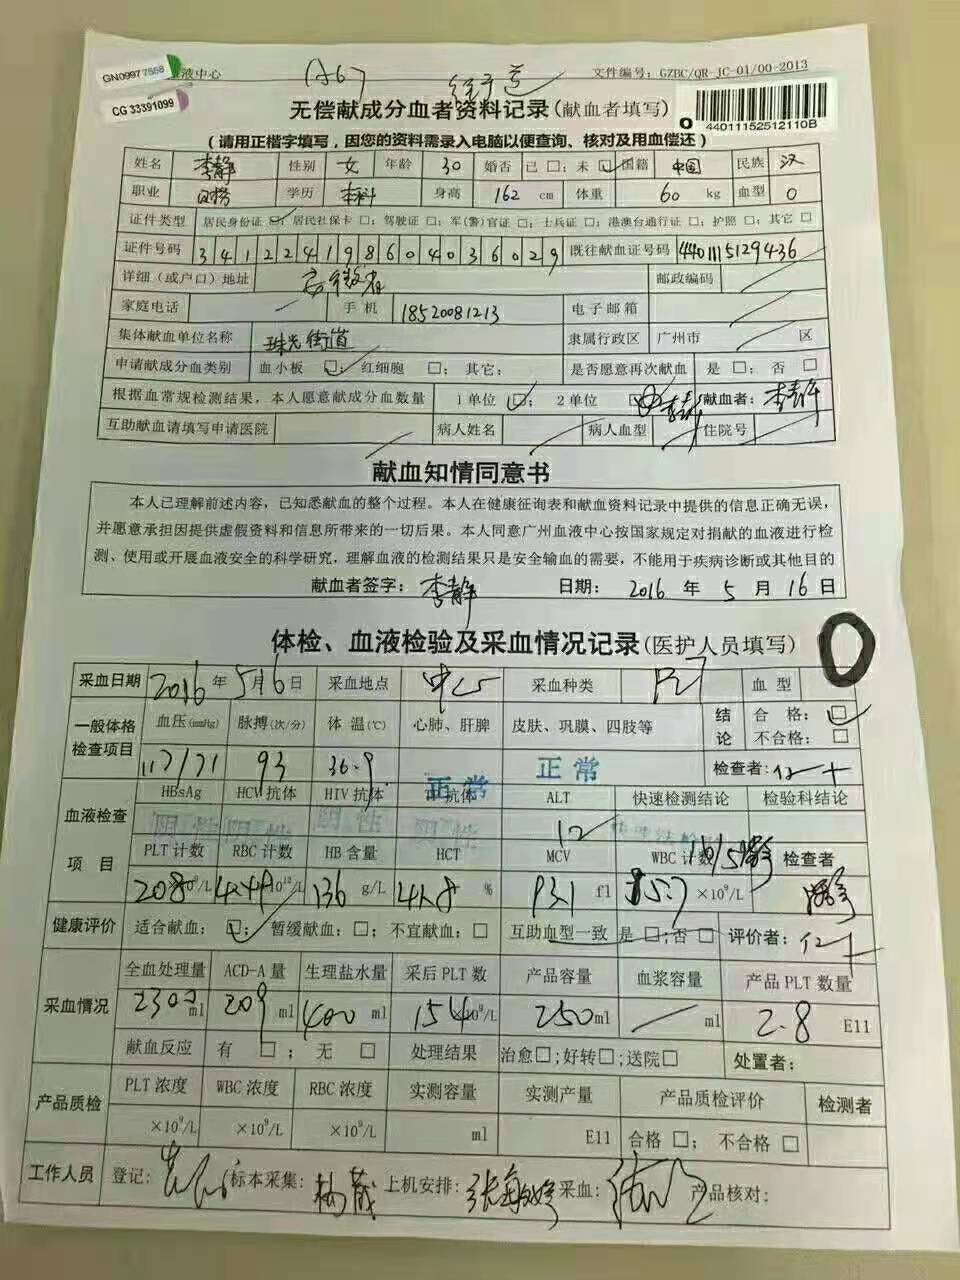 GN09977558
液中心
文件编号：GZBC/QR-JC-01/00-2013
CG 33391099
无偿献成分血者资料记录(献血者填写)
44011152512110B
(请用正楷字填写，因您的资料需录入电脑以便查询、核对及用血偿还)
姓名 李静 性别 女 年龄 30 婚否 已□；未 国籍 中国 民族 汉
职业 学历 本科 身高 162 cm 体重 60 kg 血型 O
证件类型 居民身份证 居民社保卡□；驾驶证□；军(警)官证□；士兵证□；港澳台通行证□；护照□；其它□
证件号码 341224198604036029 既往献血证号码
详细（或户口）地址 安徽省 邮政编码
家庭电话 手机 18520081213 电子邮箱
集体献血单位名称 珠光街道 隶属行政区 广州市 区
申请献成分血类别 血小板 □；红细胞 □；其它： 是否愿意再次献血 是 □；否 □
根据血常规检测结果，本人愿意献成分血数量 1单位 □；2单位 献血者：李静
互助献血请填写申请医院 病人姓名 病人血型 住院号
献血知情同意书
本人已理解前述内容，已知悉献血的整个过程。本人在健康征询表和献血资料记录中提供的信息正确无误，
并愿意承担因提供虚假资料和信息所带来的一切后果。本人同意广州血液中心按国家规定对捐献的血液进行检
测、使用或开展血液安全的科学研究，理解血液的检测结果只是安全输血的需要，不能用于疾病诊断或其他目的
献血者签字：李静 日期：2016 年 5 月 16 日
体检、血液检验及采血情况记录(医护人员填写) O
采血日期 2016 年 5月6 日 采血地点 中心 采血种类 血型
一般体格检查项目 血压(mmHg) 脉搏(次/分) 体 温(℃) 心肺、肝脾 皮肤、巩膜、四肢等 结论 合 格：□ 不合格：□
117/71 93 36.9 正常 正常 检查者：
血液检查项 目 HBsAg HCV抗体 HIV抗体 抗体 ALT 快速检测结论 检验科结论
阴性 阴性 阴性 阴性 12
PLT计数 RBC计数 HB含量 HCT MCV WBC计数 检查者
208 ×10⁹/L 4.49 10¹²/L 136 g/L 41.8 % 93.1 fl 5.7 ×10⁹/L
健康评价 适合献血：□；暂缓献血：□；不宜献血：□ 互助血型一致 是 □；否 □ 评价者：
采血情况 全血处理量 ACD-A量 生理盐水量 采后PLT数 产品容量 血浆容量 产品PLT数量
2302 ml 209 ml 400 ml 154 ×10⁹/L 250 ml ml 2.8 E11
献血反应 有 □；无 □ 处理结果 治愈□；好转□；送院□ 处置者：
产品质检 PLT浓度 WBC浓度 RBC浓度 实测容量 实测产量 产品质检评价 检测者
×10⁹/L ×10⁹/L ×10⁹/L ml E11 合格 □；不合格 □
工作人员 登记： 标本采集： 上机安排： 采血： 产品核对：